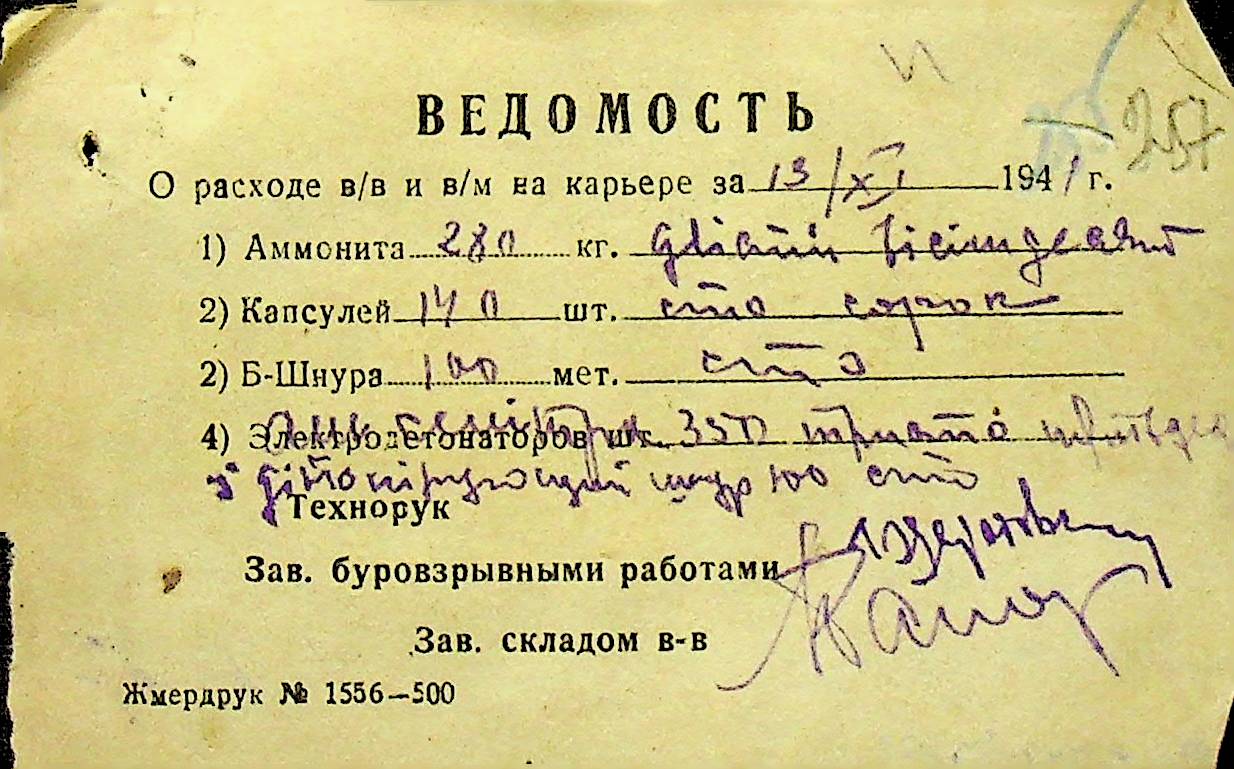 257
ВЕДОМОСТЬ
О расходе в/в и в/м на карьере за 13/XI 1941 г.
1) Аммонита 280 кг. двісті вісімдесят
2) Капсулей 140 шт. сто сорок
2) Б-Шнура 100 мет. сто
4) Электродетонаторов шт. 350 триста
5 детонірующий шнур 100 сто
Технорук
Зав. буровзрывными работами
Зав. складом в-в
Жмердрук № 1556—500